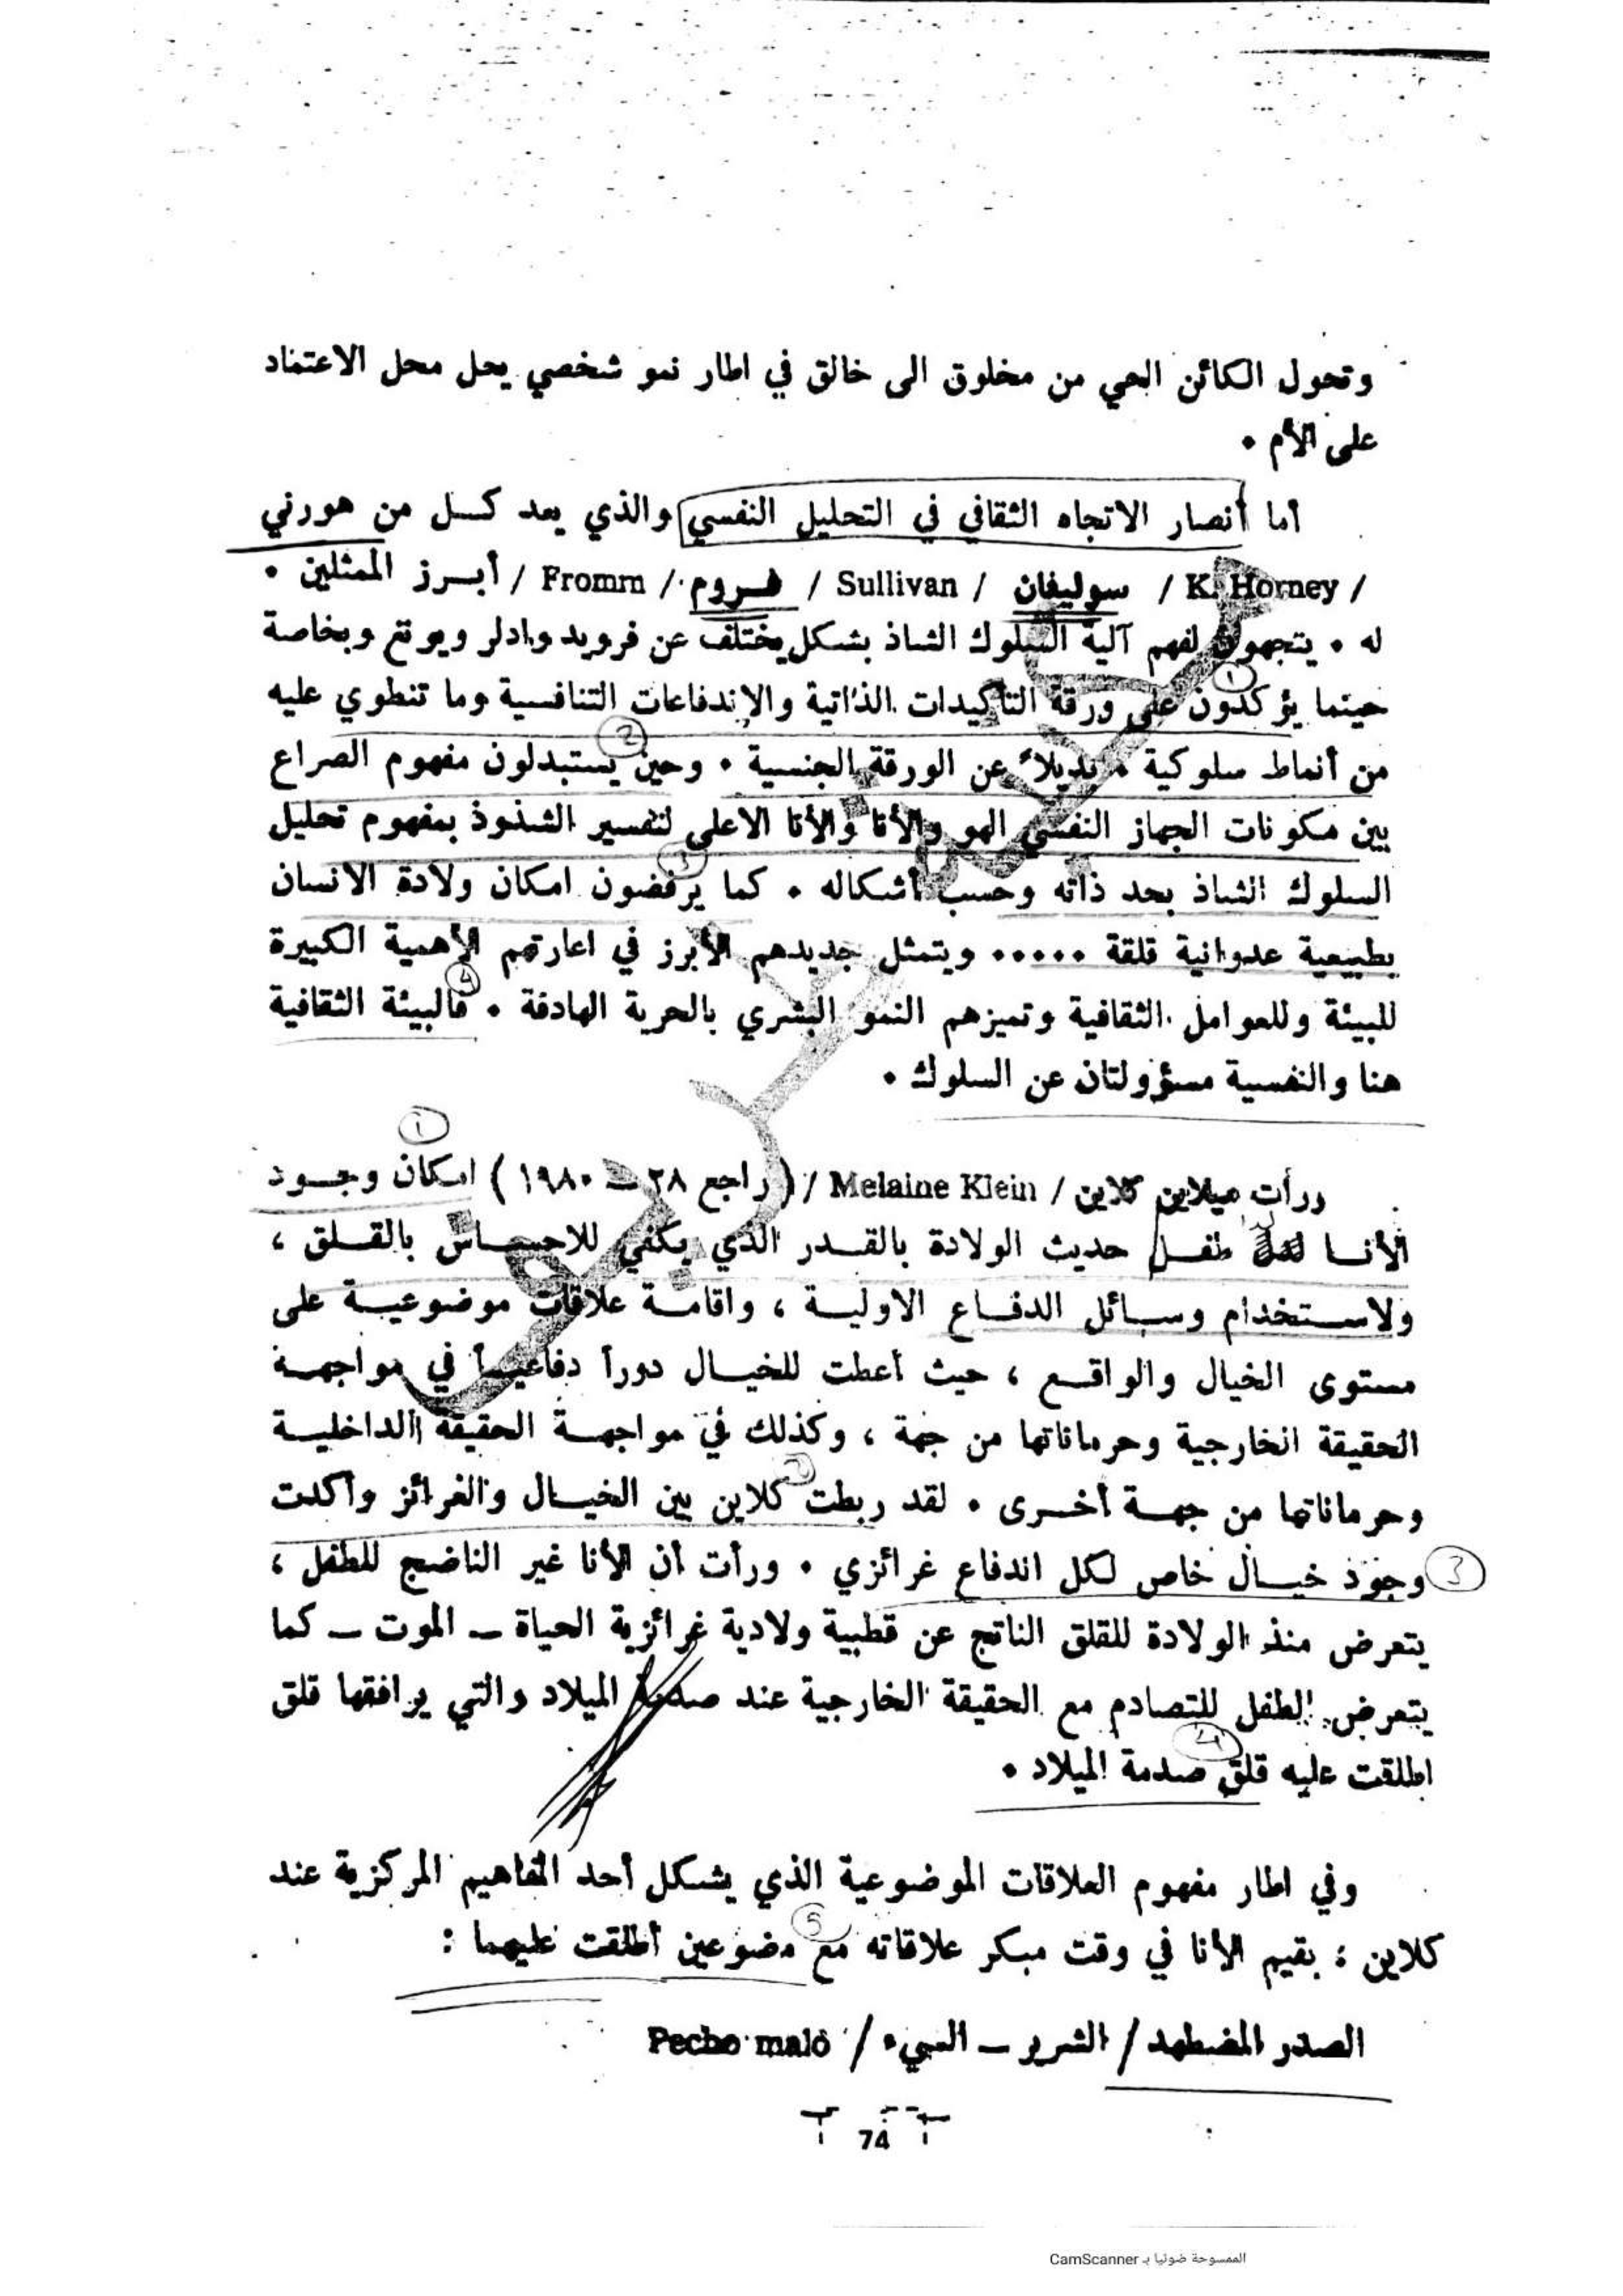 وتحول الكائن الحي من مخلوق الى خالق في اطار نمو شخصي يحل محل الاعتماد
على الأم .
أما أنصار الاتجاه الثقافي في التحليل النفسي والذي يعد كل من هورني
/ K. Horney / سوليفان / Sullivan / فروم / Fromm / أبرز الممثلين .
له . يتجهون لفهم آلية السلوك الشاذ بشكل يختلف عن فرويد وادلر ويونغ وبخاصة
1
حينما يؤكدون على ورقة التأكيدات الذاتية والاندفاعات التنافسية وما تنطوي عليه
2
من أنماط سلوكية . بديلاً عن الورقة الجنسية . وحين يستبدلون مفهوم الصراع
بين مكونات الجهاز النفسي الهو والأنا والأنا الاعلى لتفسير الشذوذ بمفهوم تحليل
3
السلوك الشاذ بحد ذاته وحسب أشكاله . كما يرفضون امكان ولادة الانسان
بطبيعية عدوانية قلقة ..... ويتمثل جديدهم الأبرز في اعارتهم الأهمية الكبيرة
4
للبيئة وللعوامل الثقافية وتميزهم النمو البشري بالحرية الهادفة . فالبيئة الثقافية
هنا والنفسية مسؤولتان عن السلوك .
1
ورأت ميلاين كلاين / Melaine Klein / ( راجع ٢٨ – ١٩٨٠ ) امكان وجود
الأنا طفل حديث الولادة بالقدر الذي يكفي للاحساس بالقلق ،
ولاستخدام وسائل الدفاع الاولية ، واقامة علاقات موضوعية على
مستوى الخيال والواقع ، حيث أعطت للخيال دوراً دفاعياً في مواجهة
الحقيقة الخارجية وحرماناتها من جهة ، وكذلك في مواجهة الحقيقة الداخلية
2
وحرماناتها من جهة أخرى . لقد ربطت كلاين بين الخيال والغرائز وأكدت
3 وجود خيال خاص لكل اندفاع غرائزي . ورأت أن الأنا غير الناضج للطفل ،
يتعرض منذ الولادة للقلق الناتج عن قطبية ولادية غرائزية الحياة – الموت – كما
يتعرض الطفل للتصادم مع الحقيقة الخارجية عند صدمة الميلاد والتي يرافقها قلق
4
اطلقت عليه قلق صدمة الميلاد .
وفي اطار مفهوم العلاقات الموضوعية الذي يشكل أحد المفاهيم المركزية عند
5
كلاين ؛ يقيم الأنا في وقت مبكر علاقاته مع مضوعين أطلقت عليهما :
الصدر المضطهد / الشرير – السيء / Pecho malo
74
الممسوحة ضوئيا بـ CamScanner